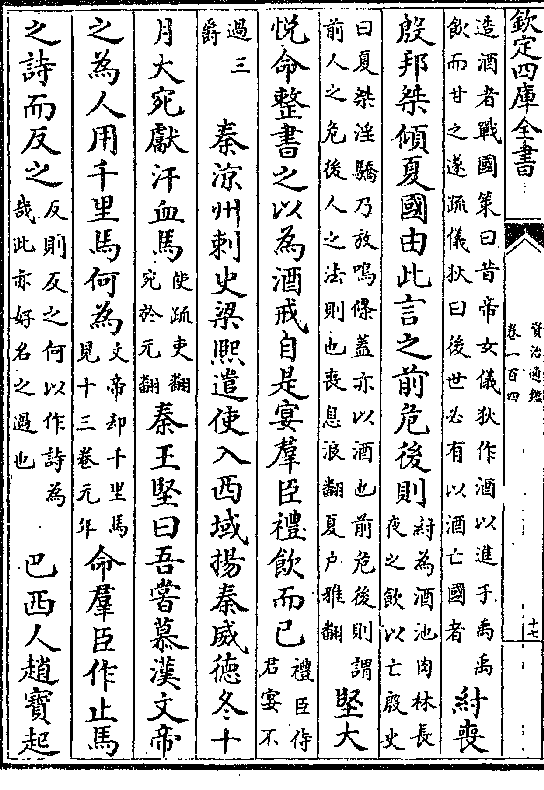 欽定四庫全書
資治通鑑
卷一百四
十七
造酒者戰國策曰昔帝女儀狄作酒以進于禹禹
飲而甘之遂疏儀狄曰後世必有以酒亡國者
紂喪
殷邦桀傾夏國由此言之前危後則
紂為酒池肉林長
夜之飲以亡殷史
曰夏桀淫驕乃放鳴條蓋亦以酒也前危後則謂
前人之危後人之法則也喪息浪翻夏户雅翻
堅大
悦命整書之以為酒戒自是宴羣臣禮飲而已
禮臣侍
君宴不
過三
爵
秦涼州刺史梁熙遣使入西域揚秦威德冬十
月大宛獻汗血馬
使疏吏翻
宛於元翻
秦王堅曰吾嘗慕漢文帝
之為人用千里馬何為
文帝却千里馬
見十三卷元年
命羣臣作止馬
之詩而反之
反則反之何以作詩為
哉此亦好名之過也
巴西人趙寶起